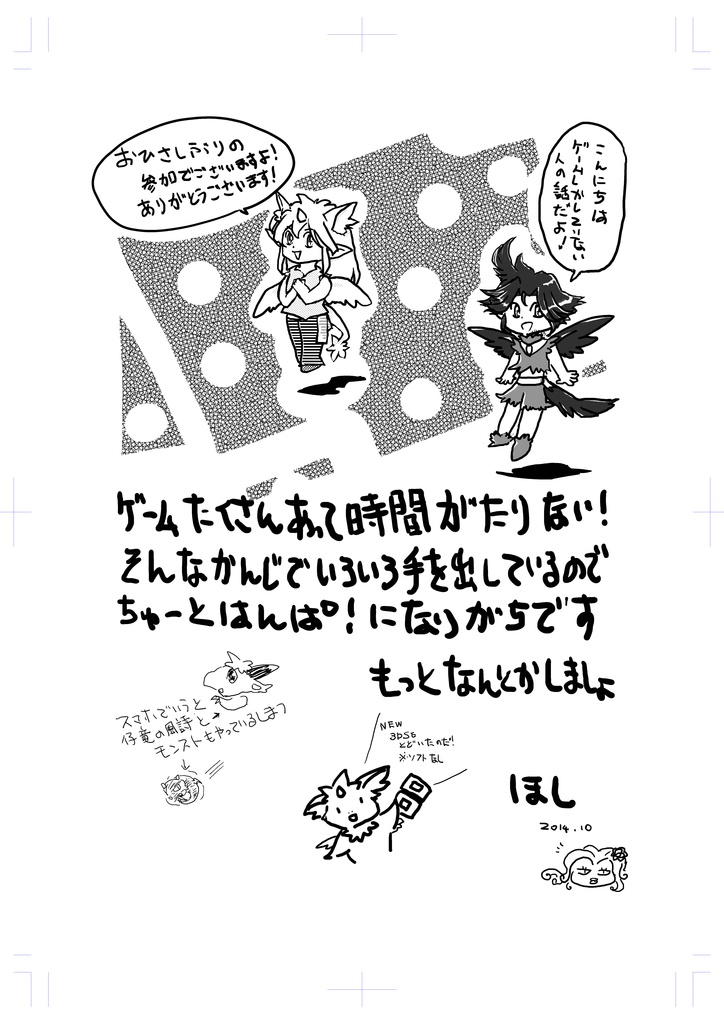 こんにちは
ゲームしかしていない
人の話だよ!
おひさしぶりの
参加でございますよ!
ありがとうございます!
ゲームたくさんあって時間がたりない!
そんなかんじでいろいろ手を出しているので
ちゅーとはんぱ!になりがちです
もっとなんとかしましょ
スマホでいうと
仔竜の風詩と
モンストもやっているしまつ
NEW
3DSも
とどいたのだ!!
※ソフトなし
ほし
2014.10